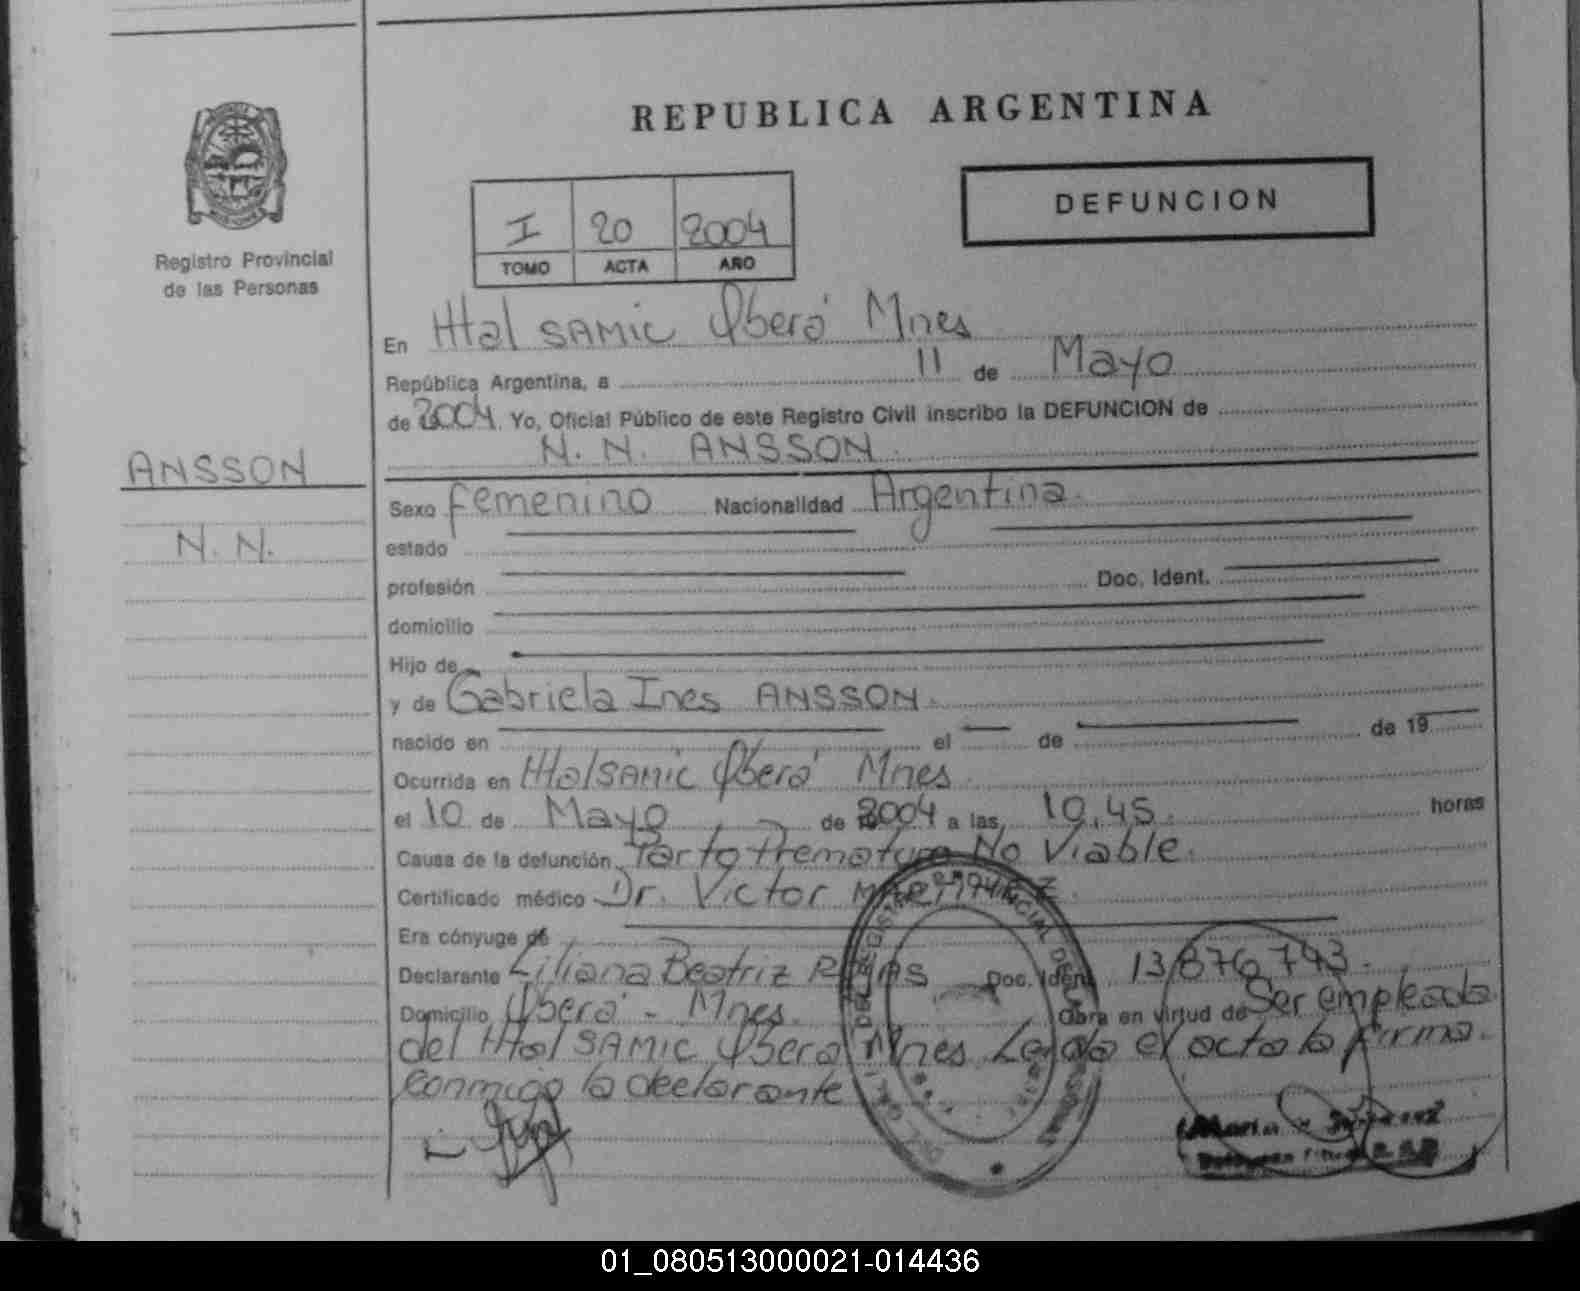 REPUBLICA ARGENTINA
DEFUNCION
I 20 2004
TOMO ACTA AÑO
Registro Provincial
de las Personas
En Htal SAMIC Oberá Mnes
República Argentina, a 11 de Mayo
de 2004. Yo, Oficial Público de este Registro Civil inscribo la DEFUNCION de
N. N. ANSSON.
ANSSON
N. N.
Sexo femenino Nacionalidad Argentina.
estado
profesión Doc. Ident.
domicilio
Hijo de
y de Gabriela Ines ANSSON.
nacido en el de de 19
Ocurrida en Htal SAMIC Oberá Mnes.
el 10 de Mayo de 2004 a las 10,45. horas
Causa de la defunción Parto Prematuro No Viable.
Certificado médico Dr. Victor
Era cónyuge de
Declarante Liliana Beatriz Doc. Ident. 13876743.
Domicilio Oberá - Mnes. Obra en virtud de Ser empleada
del Htal SAMIC Oberá Mnes Leida el acta la firma
conmigo la declarante
01_080513000021-014436